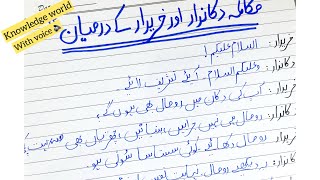 Knowledge world
With voice
مکالمہ دکاندار اور خریدار کے درمیان
خریدار: السلام علیکم!
دکاندار: وعلیکم السلام۔ آئیے تشریف لائیے۔
خریدار: آپ کی دکان میں رومال بھی ہوں گے۔
دکاندار: رومال بھی ہیں، جرابیں، بنیانیں،
خریدار: رومال دکھائیے کوئی سستا سا سوتی ہو۔
دکاندار: یہ دیکھیے رومال